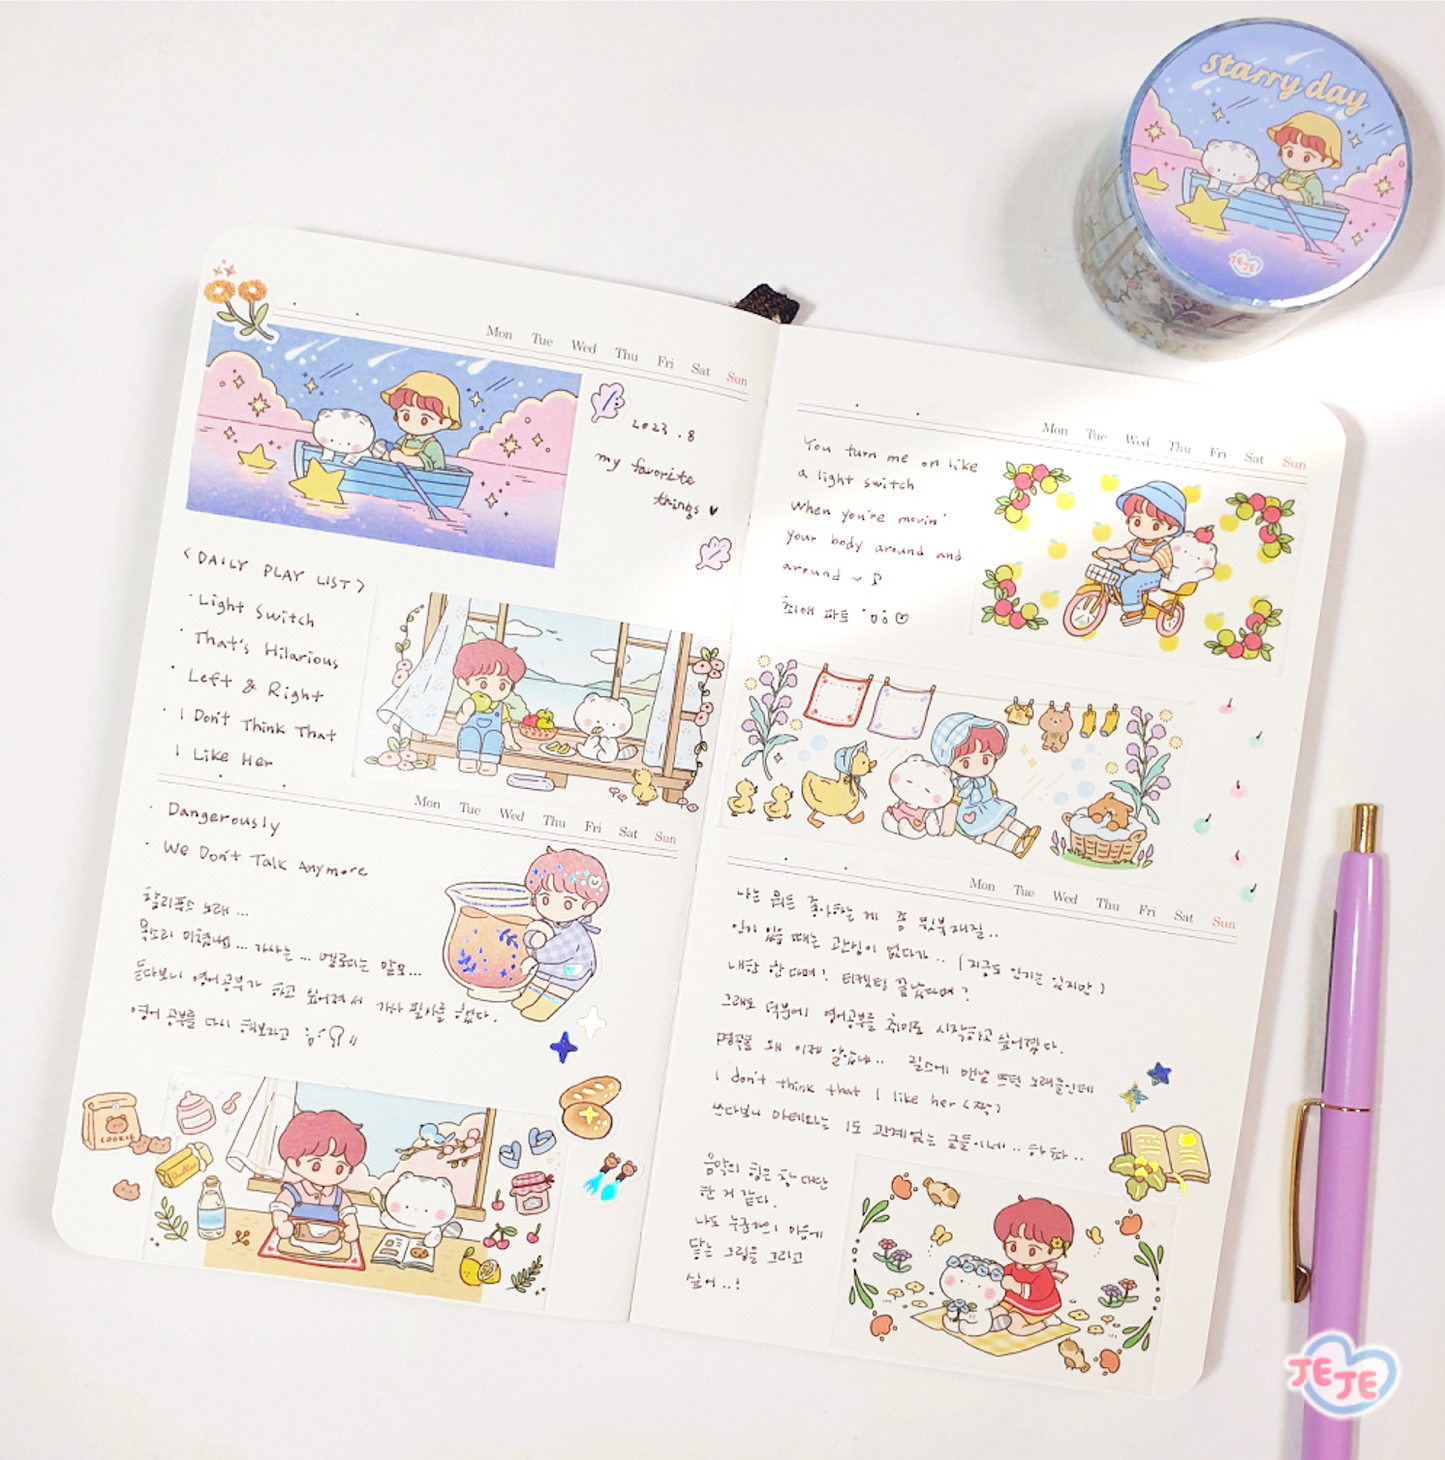 starry day
JEJE
Mon Tue Wed Thu Fri Sat Sun
2023.8
my favorite
things ♥
<DAILY PLAY LIST>
· Light Switch
· That's Hilarious
· Left & Right
· I Don't Think That
I Like Her
Mon Tue Wed Thu Fri Sat Sun
· Dangerously
· We Don't Talk Anymore
찰리푸스 노래...
목소리 미쳤나... 가사는... 멜로디는 말모...
듣다보니 영어공부가 하고 싶어져서 가사 필사를 했다.
영어 공부를 다시 해보라고
COOKIE
Butter
Mon Tue Wed Thu Fri Sat Sun
You turn me on like
a light switch
When you're movin'
your body around and
around ~ ♪
최애 파트
Mon Tue Wed Thu Fri Sat Sun
나는 뭐든 좋아하는 게 좀 뒷북재질..
인기 있을 때는 관심이 없다가.. (지금도 인기는 있지만)
내한 한다며? 티켓팅 끝났다며?
그래도 덕분에 영어공부를 취미로 시작하고 싶어졌다.
명곡을 왜 이제 알았나.. 릴스에 맨날 뜨던 노래들인데
I don't think that I like her (짱)
쓰다보니 마테와는 1도 관계없는 글들이네.. 하핫..
음악의 힘은 참 대단
한 거 같다.
나도 누군가의 마음에
닿는 그림을 그리고
싶어..!
JEJE